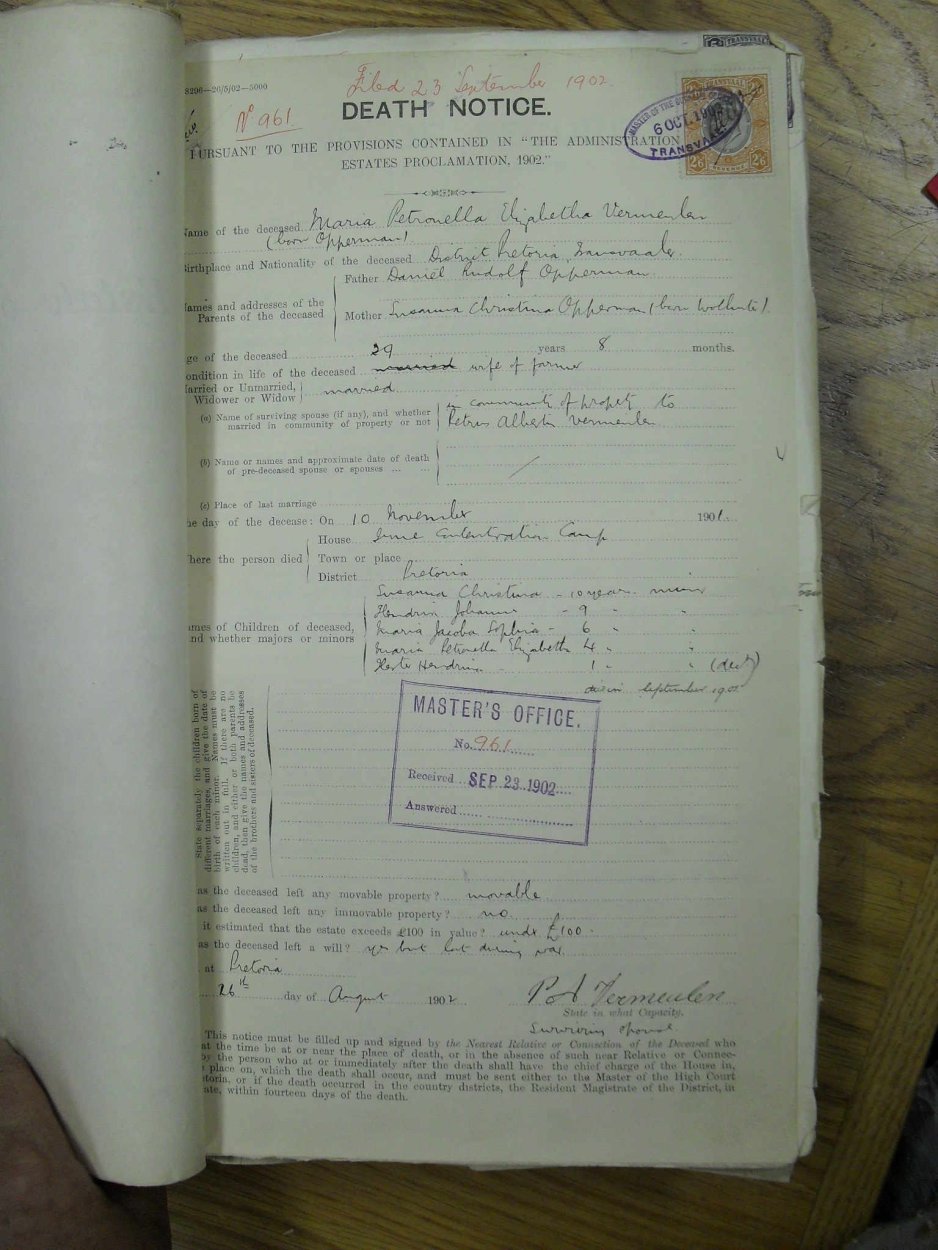 8296—26/5/02—5000
Filed 23 September 1902.
No 961
DEATH NOTICE.
TRANSVAAL
MASTER OF THE
6 OCT. 1902
TRANSVAAL
2/6 REVENUE 2/6
PURSUANT TO THE PROVISIONS CONTAINED IN "THE ADMINISTRATION
ESTATES PROCLAMATION, 1902."
Name of the deceased Maria Petronella Elizabetha Vermeulen
(born Opperman)
Birthplace and Nationality of the deceased District Pretoria, Transvaaler.
Names and addresses of the Parents of the deceased
Father Daniel Rudolf Opperman
Mother Susanna Christina Opperman (born Wolhute).
ge of the deceased 29 years 8 months.
ondition in life of the deceased married wife of farmer
arried or Unmarried, Widower or Widow married
(a) Name of surviving spouse (if any), and whether married in community of property or not
in community of property to
Petrus Albertu Vermeulen
(b) Name or names and approximate date of death of pre-deceased spouse or spouses ... ...
(c) Place of last marriage
he day of the decease: On 10 November 1901.
here the person died
House Irene Concentration Camp
Town or place
District Pretoria
ames of Children of deceased, and whether majors or minors
Susanna Christina - 10 years - minor
Hendrin Johanna - 9 " "
Maria Jacoba Sophia - 6 " "
Maria Petronella Elizabetha 4 " "
Hester Hendrina - 1 " " (dead)
died in September 1901
State separately the children born of
different marriages, and give the date of
birth of each minor. Names must be
written out in full. If there are no
children, and either or both parents be
dead, then give the names and addresses
of the brothers and sisters of deceased.
MASTER'S OFFICE.
No. 961
Received SEP 23 1902
Answered
as the deceased left any movable property? movable
as the deceased left any immovable property? no
it estimated that the estate exceeds £100 in value? under £100.
as the deceased left a will? yes but lost during war.
at Pretoria
26th day of August 1902
P A Vermeulen
State in what Capacity.
Surviving spouse
This notice must be filled up and signed by the Nearest Relative or Connection of the Deceased who
at the time be at or near the place of death, or in the absence of such near Relative or Connec-
by the person who at or immediately after the death shall have the chief charge of the House in,
place on, which the death shall occur, and must be sent either to the Master of the High Court
etoria, or if the death occurred in the country districts, the Resident Magistrate of the District, in
ate, within fourteen days of the death.